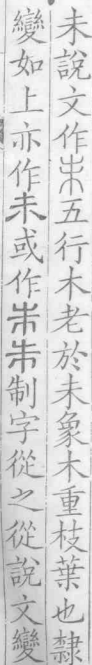 未說文作𣎳五行木老於未象木重枝葉也隸
變如上亦作未或作𣎴𣎴制字從之從說文變